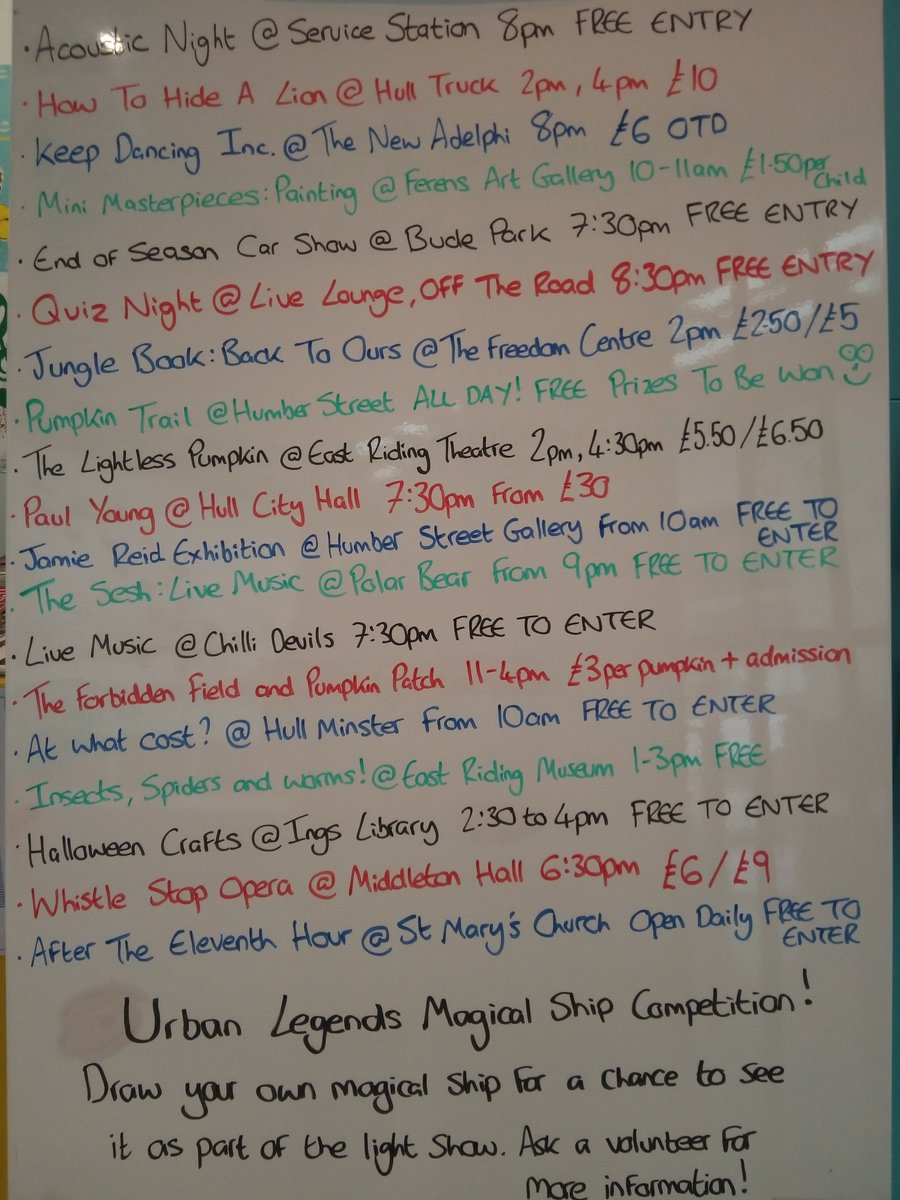 · Acoustic Night @ Service Station 8pm FREE ENTRY
· How To Hide A Lion @ Hull Truck 2pm, 4pm £10
· Keep Dancing Inc. @ The New Adelphi 8pm £6 OTD
· Mini Masterpieces: Painting @ Ferens Art Gallery 10-11am £1.50 per
Child
· End of Season Car Show @ Bude Park 7:30pm FREE ENTRY
· Quiz Night @ Live Lounge, Off The Road 8:30pm FREE ENTRY
· Jungle Book: Back To Ours @ The Freedom Centre 2pm £2.50/£5
· Pumpkin Trail @ Humber Street ALL DAY! FREE Prizes To Be Won
· The Lightless Pumpkin @ East Riding Theatre 2pm, 4:30pm £5.50/£6.50
· Paul Young @ Hull City Hall 7:30pm From £30
· Jamie Reid Exhibition @ Humber Street Gallery From 10am FREE TO
ENTER
· The Sesh: Live Music @ Polar Bear From 9pm FREE TO ENTER
· Live Music @ Chilli Devils 7:30pm FREE TO ENTER
· The Forbidden Field and Pumpkin Patch 11-4pm £3 per pumpkin + admission
· At what cost? @ Hull Minster From 10am FREE TO ENTER
· Insects, Spiders and worms! @ East Riding Museum 1-3pm FREE
· Halloween Crafts @ Ings Library 2:30 to 4pm FREE TO ENTER
· Whistle Stop Opera @ Middleton Hall 6:30pm £6/£9
· After The Eleventh Hour @ St Mary's Church Open Daily FREE TO
ENTER
Urban Legends Magical Ship Competition!
Draw your own magical ship for a chance to see
it as part of the light show. Ask a volunteer for
more information!